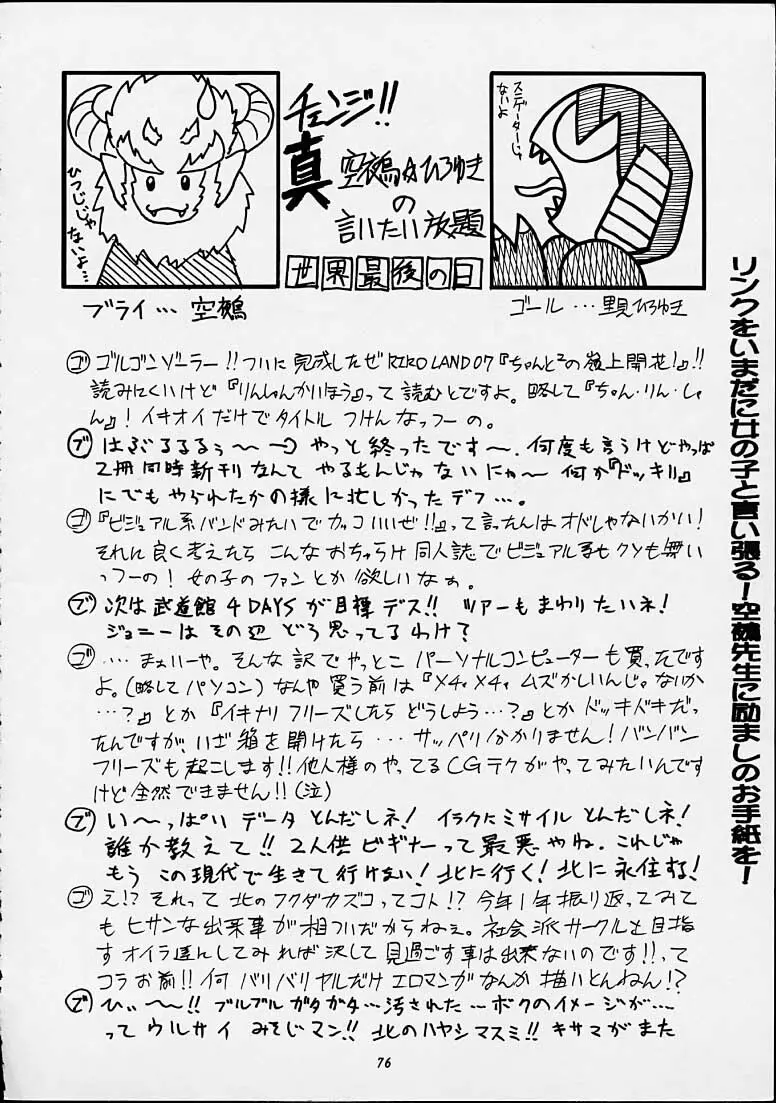 チェンジ!!
真 空鵺☆ひろゆき
の
言いたい放題
世界最後の日
ひつじじゃ
ないよ…
ステゴザーじゃ
ないよ
ブライ… 空鵺
ゴール …里見ひろゆき
ゴ ゴルゴンゾーラー!!ついに完成したぜRIROLAND07『ちゃんと²の嶺上開花!』!!
読みにくいけど『りんしゃんかいほう』って読むとですよ。略して『ちゃん・りん・しゃ
ん』! イキオイだけでタイトル つけんなっつーの。
ブ はぶるるるぅ〜〜 やっと終ったです〜. 何度も言うけどやっぱ
2冊同時新刊なんて やるもんじゃないにゃ〜 何か『ドッキリ』
にでもやられたかの様に忙しかったデフ…。
ゴ 『ビジュアル系バンドみたいでカッコいいぜ!!』って言ったんはオドレじゃないかい!
それに良く考えたら こんなおちゃらけ同人誌でビジュアル系もクソも無い
っつーの! 女の子のファンとか欲しいなぁ。
ブ 次は武道館4DAYSが目標デス!! ツアーもまわりたいネ!
ジョニーは その辺 どう思ってるわけ?
ゴ …. まぁいーや。そんな訳でやっとこ パーソナルコンピューターも買ったです
よ。(略してパソコン)なんや買う前は『メチャメチャ ムズかしいんじゃないか
…?』とか『イキナリ フリーズしたら どうしよう…?』とか ドッキドキだっ
たんですが、いざ箱を開けたら … サッパリ分かりません! バンバン
フリーズも起こします!! 他人様のやってるCGテクがやってみたいんです
けど全然できません!!(泣)
ブ い〜っぱい データ とんだしネ! イラクにミサイル とんだしネ!
誰か教えて!! 2人供 ビギナーって最悪やね. これじゃ
もう この現代で生きて行けない! 北に行く! 北に永住する!
ゴ え!? それって 北のフクダカズコってコト!? 今年1年振り返ってみて
も ヒサンな出来事が相ついだからねぇ。社会派サークルを目指
すオイラ達んしてみれば決して見過ごす事は出来ないのです!!って
コラお前!! 何 バリバリヤルだけエロマンガなんか 描いとんねん!?
ブ ひぃ〜〜!! ブルブルガタガタ…汚された…ボクのイメージが….
って ウルサイ みそじマン!! 北のハヤシマスミ!! キサマがまた
リンクをいまだに女の子と言い張る!空鵺先生に励ましのお手紙を!
76